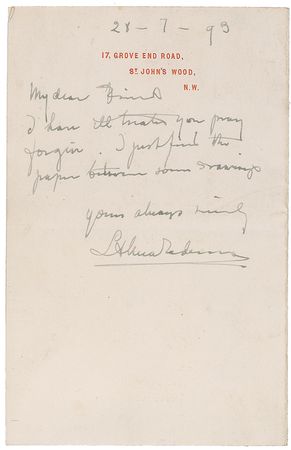 28 - 7 - 93
17, GROVE END ROAD,
ST JOHN'S WOOD,
N.W.
My dear Friend
I have ill treated you pray
forgive. I just find the
paper between some drawings
yours always sincerely
L Alma Tadema